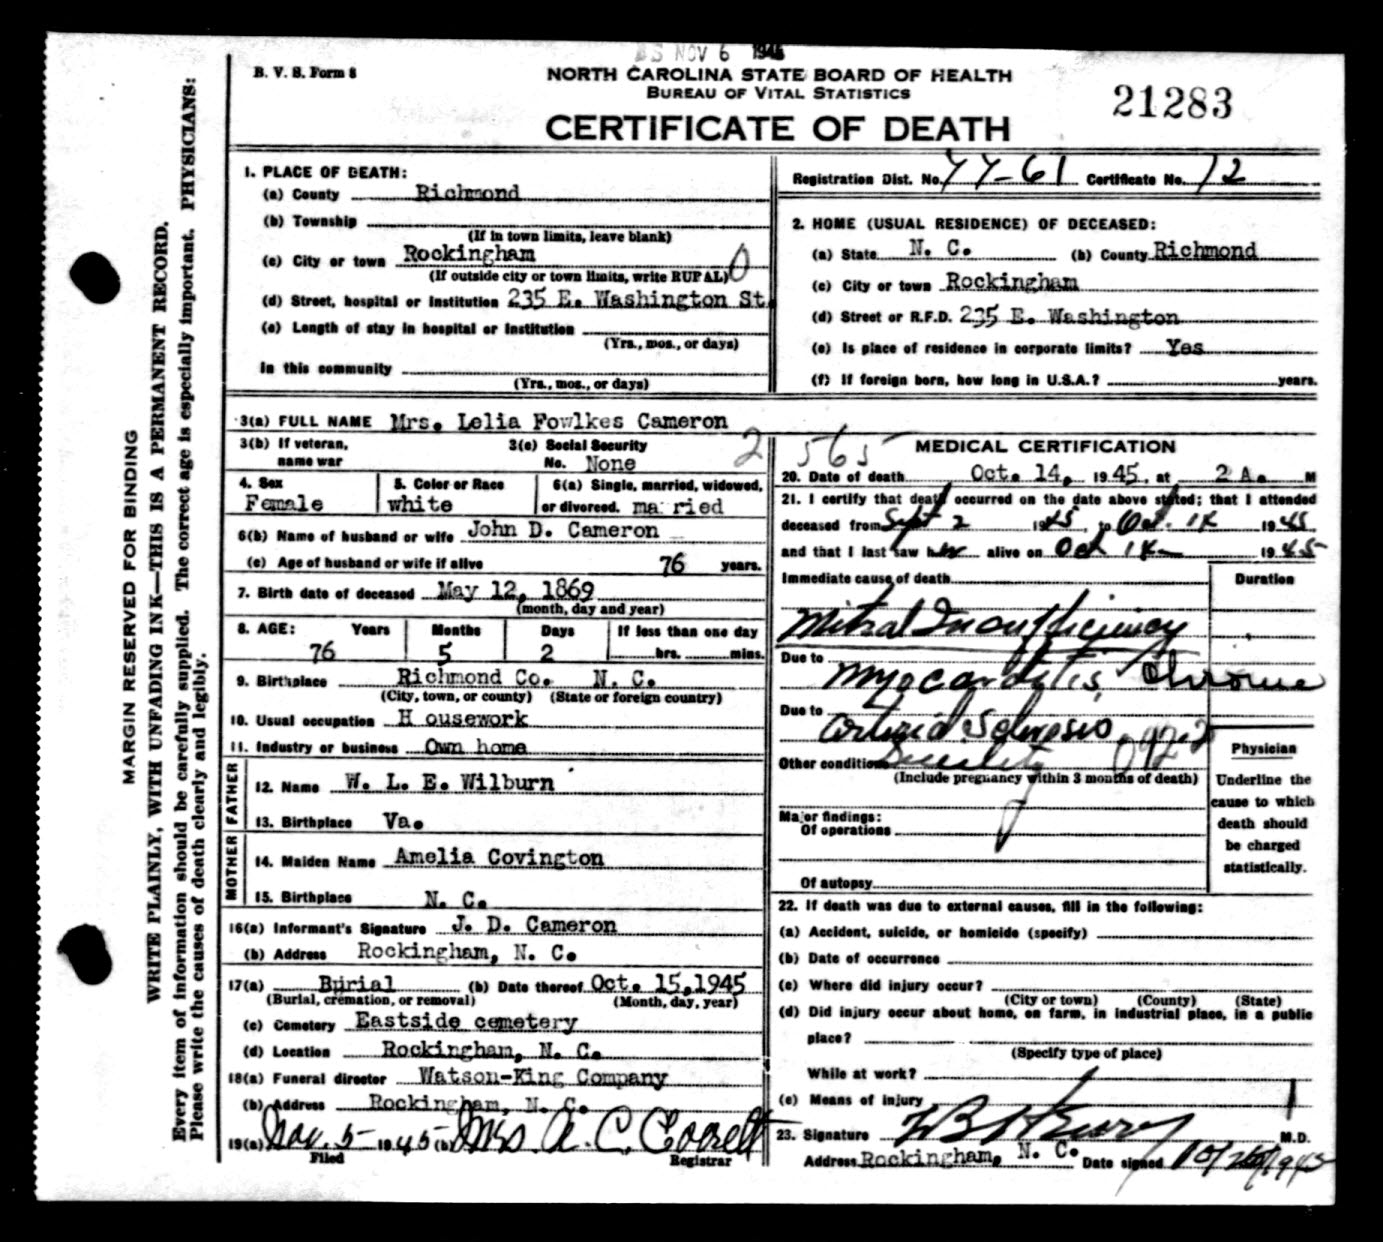 NOV 6 1945
B. V. S. Form 8
NORTH CAROLINA STATE BOARD OF HEALTH
BUREAU OF VITAL STATISTICS
CERTIFICATE OF DEATH
21283
MARGIN RESERVED FOR BINDING
WRITE PLAINLY, WITH UNFADING INK—THIS IS A PERMANENT RECORD.
Every item of information should be carefully supplied. The correct age is especially important. PHYSICIANS:
Please write the causes of death clearly and legibly.
1. PLACE OF DEATH:
(a) County Richmond
(b) Township
(If in town limits, leave blank)
(c) City or town Rockingham 0
(If outside city or town limits, write RURAL)
(d) Street, hospital or institution 235 E. Washington St.
(e) Length of stay in hospital or institution
(Yrs., mos., or days)
In this community
(Yrs., mos., or days)
Registration Dist. No. 77-61 Certificate No. 72
2. HOME (USUAL RESIDENCE) OF DECEASED:
(a) State N. C. (b) County Richmond
(c) City or town Rockingham
(d) Street or R.F.D. 235 E. Washington
(e) Is place of residence in corporate limits? Yes
(f) If foreign born, how long in U.S.A.? years.
3(a) FULL NAME Mrs. Lelia Fowlkes Cameron
3(b) If veteran, name war
3(c) Social Security No. None
2 565
4. Sex Female
5. Color or Race white
6(a) Single, married, widowed, or divorced. ma ried
6(b) Name of husband or wife John D. Cameron
(c) Age of husband or wife if alive 76 years.
7. Birth date of deceased May 12, 1869
(month, day and year)
8. AGE: Years Months Days If less than one day
76 5 2 hrs. mins.
9. Birthplace Richmond Co. N. C.
(City, town, or county) (State or foreign country)
10. Usual occupation H ousework
11. Industry or business Own home
FATHER
12. Name W. L. E. Wilburn
13. Birthplace Va.
MOTHER
14. Maiden Name Amelia Covington
15. Birthplace N. C.
16(a) Informant's Signature J. D. Cameron
(b) Address Rockingham, N. C.
17(a) Burial (b) Date thereof Oct. 15,1945
(Burial, cremation, or removal) (Month, day, year)
(c) Cemetery Eastside cemetery
(d) Location Rockingham, N. C.
18(a) Funeral director Watson-King Company
(b) Address Rockingham, N. C.
19(a) Nov. 5- 1945 (b) Mrs. A. C.
Filed Registrar
MEDICAL CERTIFICATION
20. Date of death Oct. 14, 1945, at 2 A. M
21. I certify that death occurred on the date above stated; that I attended
deceased from Sept 2 1945 to Oct. 14 1945
and that I last saw her alive on Oct 14 1945
Immediate cause of death Duration
Mitral Insufficiency
Due to Myocarditis Chronic
Due to Arterio Sclerosis
Other conditions Senility 092-2
(Include pregnancy within 3 months of death)
Major findings:
Of operations
Of autopsy
Physician
Underline the
cause to which
death should
be charged
statistically.
22. If death was due to external causes, fill in the following:
(a) Accident, suicide, or homicide (specify)
(b) Date of occurrence
(c) Where did injury occur?
(City or town) (County) (State)
(d) Did injury occur about home, on farm, in industrial place, in a public
place?
(Specify type of place)
While at work?
(e) Means of injury
23. Signature M.D.
Address Rockingham, N. C. Date signed 10/26/1945